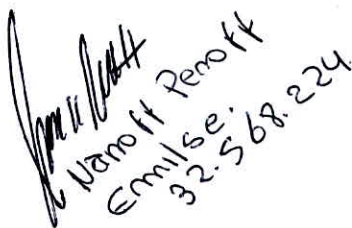 Nanoff Penoff
Emilse.
32.568.224.